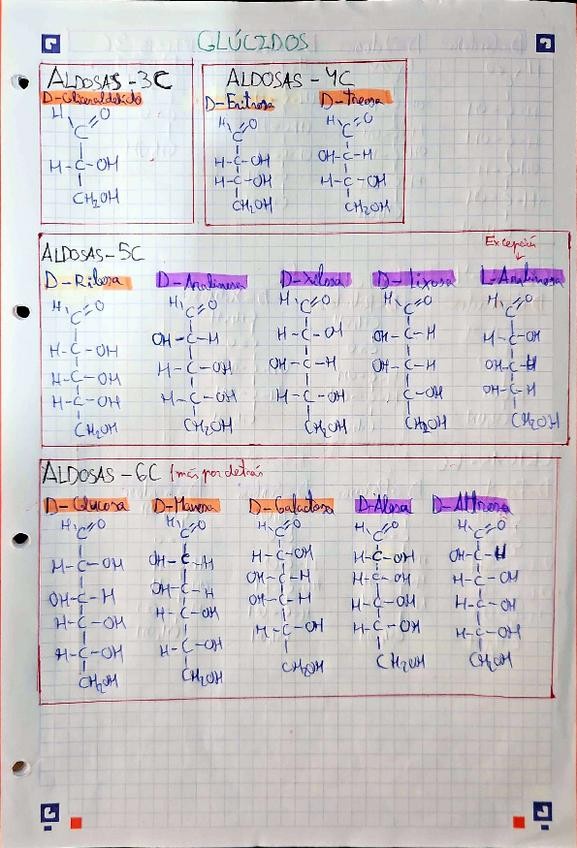 GLÚCIDOS
ALDOSAS-3C
D-Gliceraldehído
H O
C
H-C-OH
CH₂OH
ALDOSAS-4C
D-Eritrosa D-Treosa
H O H O
C C
H-C-OH OH-C-H
H-C-OH H-C-OH
CH₂OH CH₂OH
ALDOSAS-5C
Excepción
D-Ribosa D-Arabinosa D-Xilosa D-Lixosa L-Arabinosa
H O H O H O H O H O
C C C C C
H-C-OH OH-C-H H-C-OH OH-C-H H-C-OH
H-C-OH H-C-OH OH-C-H OH-C-H OH-C-H
H-C-OH H-C-OH H-C-OH C-OH OH-C-H
CH₂OH CH₂OH CH₂OH CH₂OH CH₂OH
ALDOSAS-6C (más por detrás
D-Glucosa D-Manosa D-Galactosa D-Alosa D-Altrosa
H O H O H O H O H O
C C C C C
H-C-OH OH-C-H H-C-OH H-C-OH OH-C-H
OH-C-H OH-C-H OH-C-H H-C-OH H-C-OH
H-C-OH H-C-OH OH-C-H H-C-OH H-C-OH
H-C-OH H-C-OH H-C-OH H-C-OH H-C-OH
CH₂OH CH₂OH CH₂OH CH₂OH CH₂OH